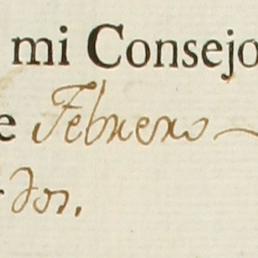 mi Consejo
e Febrero
dos.